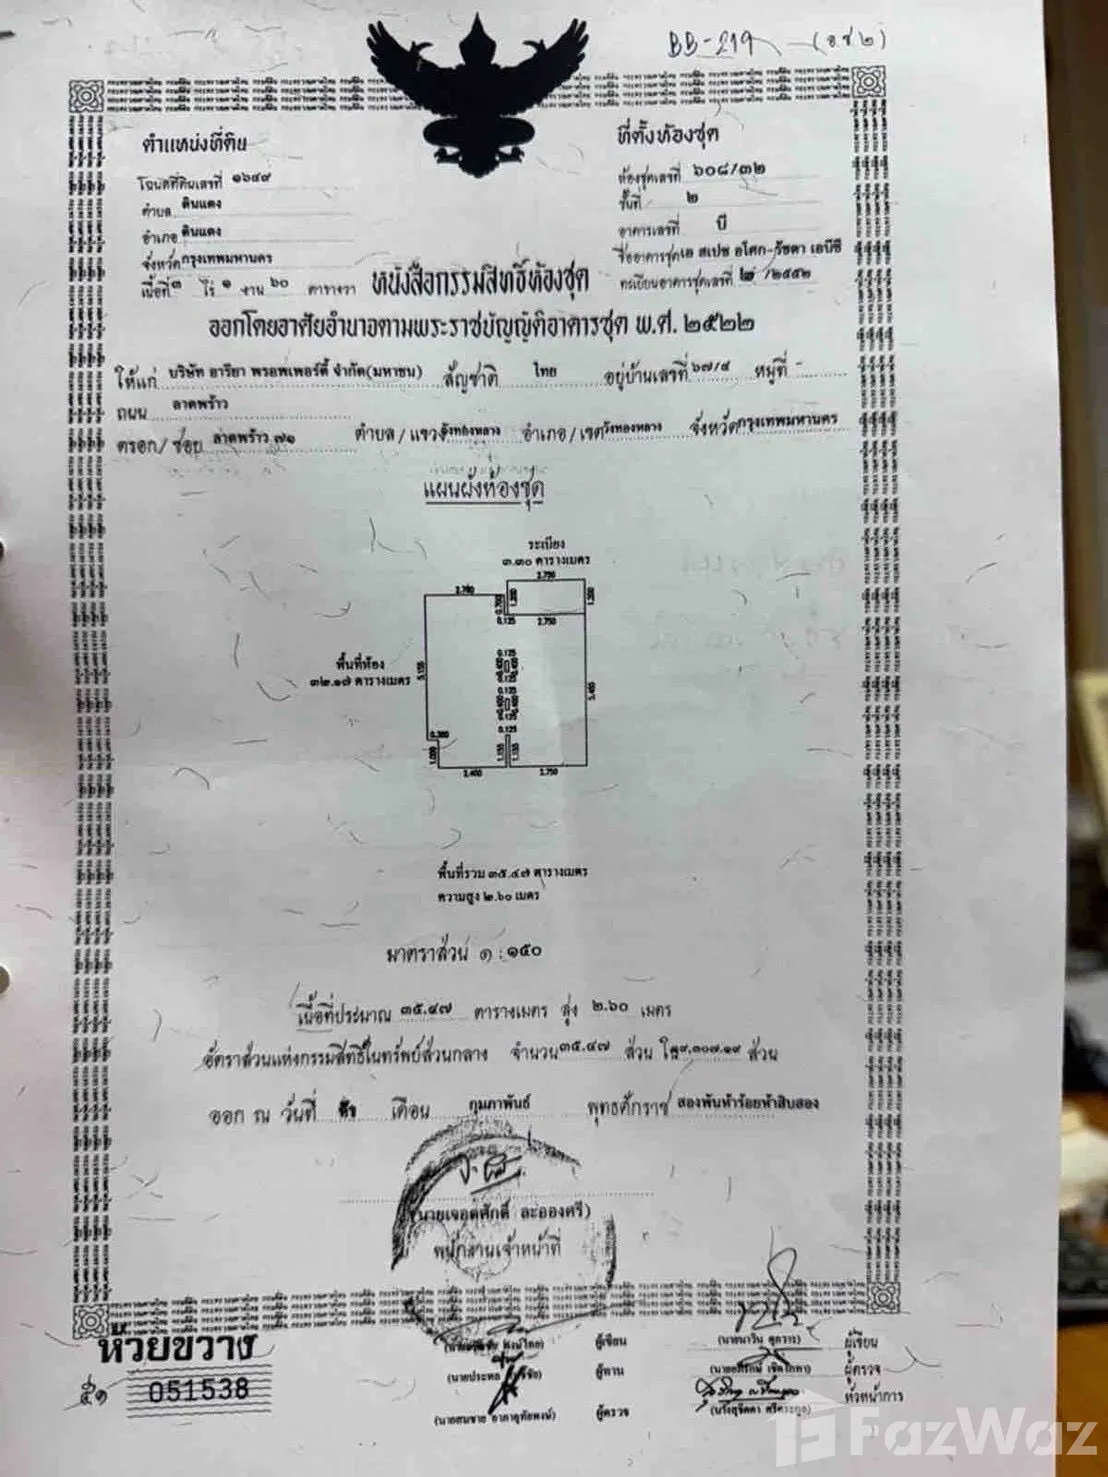 BB-219 (อ.ช ๒)
ตำแหน่งที่ดิน
ที่ตั้งห้องชุด
โฉนดที่ดินเลขที่ ๑๖๔๙
ห้องชุดเลขที่ ๖๐๘/๓๒
ตำบล ดินแดง
ชั้นที่ ๒
อำเภอ ดินแดง
อาคารเลขที่ บี
จังหวัด กรุงเทพมหานคร
ชื่ออาคารชุด เอ สเปซ อโศก-รัชดา เอบีซี
เนื้อที่ ๓ ไร่ ๑ งาน ๖๐ ตารางวา
ทะเบียนอาคารชุดเลขที่ ๒ /๒๕๕๒
หนังสือกรรมสิทธิ์ห้องชุด
ออกโดยอาศัยอำนาจตามพระราชบัญญัติอาคารชุด พ.ศ. ๒๕๒๒
ให้แก่ บริษัท อารียา พรอพเพอร์ตี้ จำกัด(มหาชน) สัญชาติ ไทย อยู่บ้านเลขที่ ๖๗/๔ หมู่ที่ -
ถนน ลาดพร้าว
ตรอก/ซอย ลาดพร้าว ๗๑ ตำบล/แขวง วังทองหลาง อำเภอ/เขต วังทองหลาง จังหวัด กรุงเทพมหานคร
แผนผังห้องชุด
ระเบียง
๓.๓๐ ตารางเมตร
2.750
1.200
0.125 2.750
พื้นที่ห้อง
๓๒.๑๗ ตารางเมตร
0.125
0.125
0.125
1.155
1.155
2.400 2.750
พื้นที่รวม ๓๕.๔๗ ตารางเมตร
ความสูง ๒.๖๐ เมตร
มาตราส่วน ๑ : ๑๕๐
เนื้อที่ประมาณ ๓๕.๔๗ ตารางเมตร สูง ๒.๖๐ เมตร
อัตราส่วนแห่งกรรมสิทธิ์ในทรัพย์ส่วนกลาง จำนวน ๓๕.๔๗ ส่วน ใน ๙,๓๐๗.๑๙ ส่วน
ออก ณ วันที่ เดือน กุมภาพันธ์ พุทธศักราช สองพันห้าร้อยห้าสิบสอง
(นายเจอดศักดิ์ ละอองศรี)
พนักงานเจ้าหน้าที่
ห้วยขวาง
051538
ผู้เขียน
ผู้เขียน
(นายประทล
ผู้ทาน
ผู้ตรวจ
ผู้ตรวจ
หัวหน้าการ
FazWaz